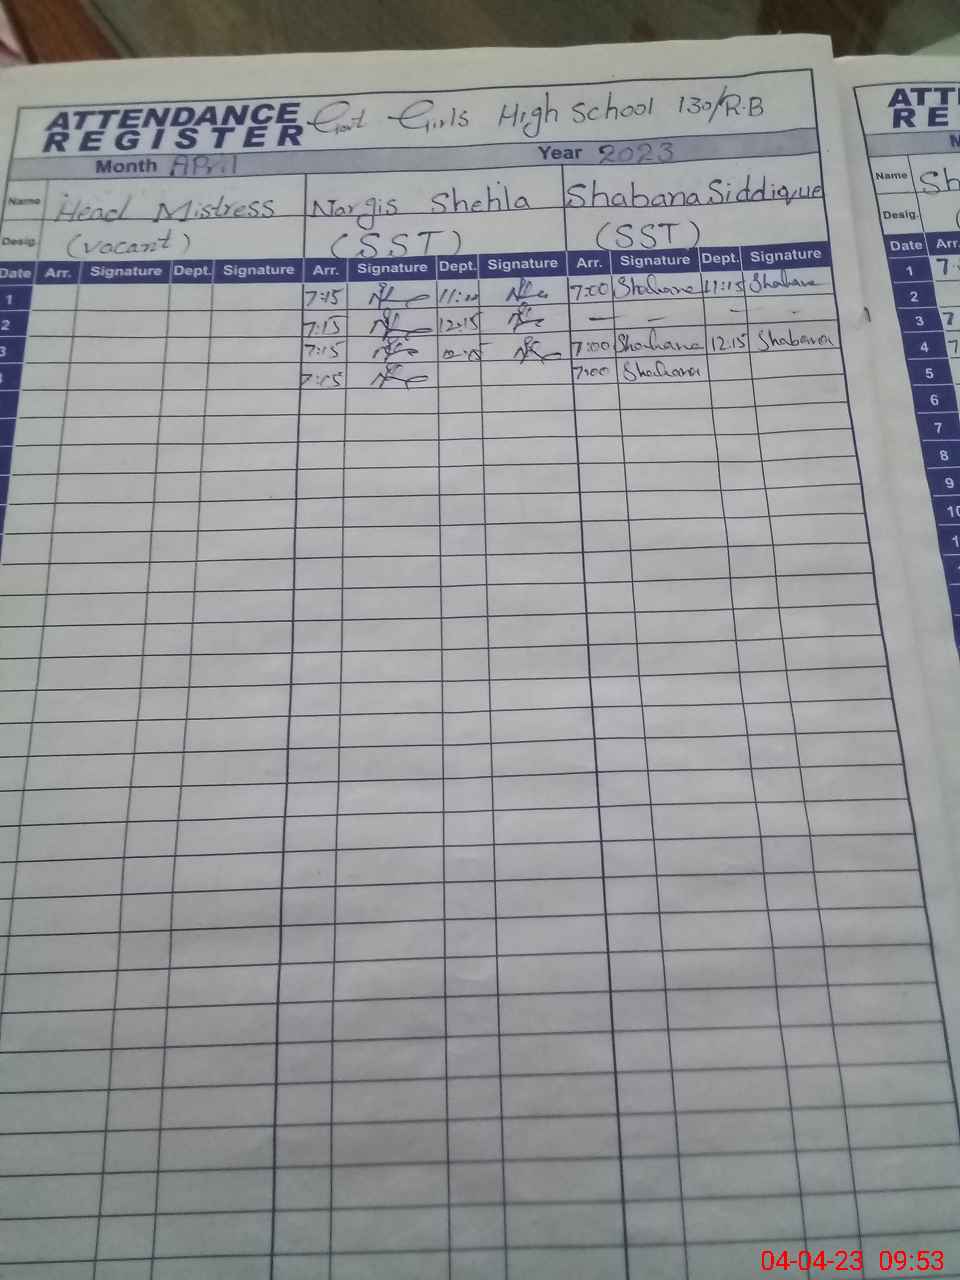 ATTENDANCE REGISTER Govt Girls High School 130/R.B
Month April Year 2023
Name Head Mistress Nargis Shehla Shabana Siddique
Desig. (Vacant) (SST) (SST)
Date Arr. Signature Dept. Signature Arr. Signature Dept. Signature Arr. Signature Dept. Signature
1 7:15 11:00 7:00 Shabana 11:15 Shabana
2 7:15 12:15 — — - -
3 7:15 7:00 Shabana 12.15 Shabana
7:15 7:00 Shabana
ATT
RE
M
Name Sh
Desig. (
Date Arr.
1 7
2
3 7
4 7
5
6
7
8
9
10
04-04-23 09:53